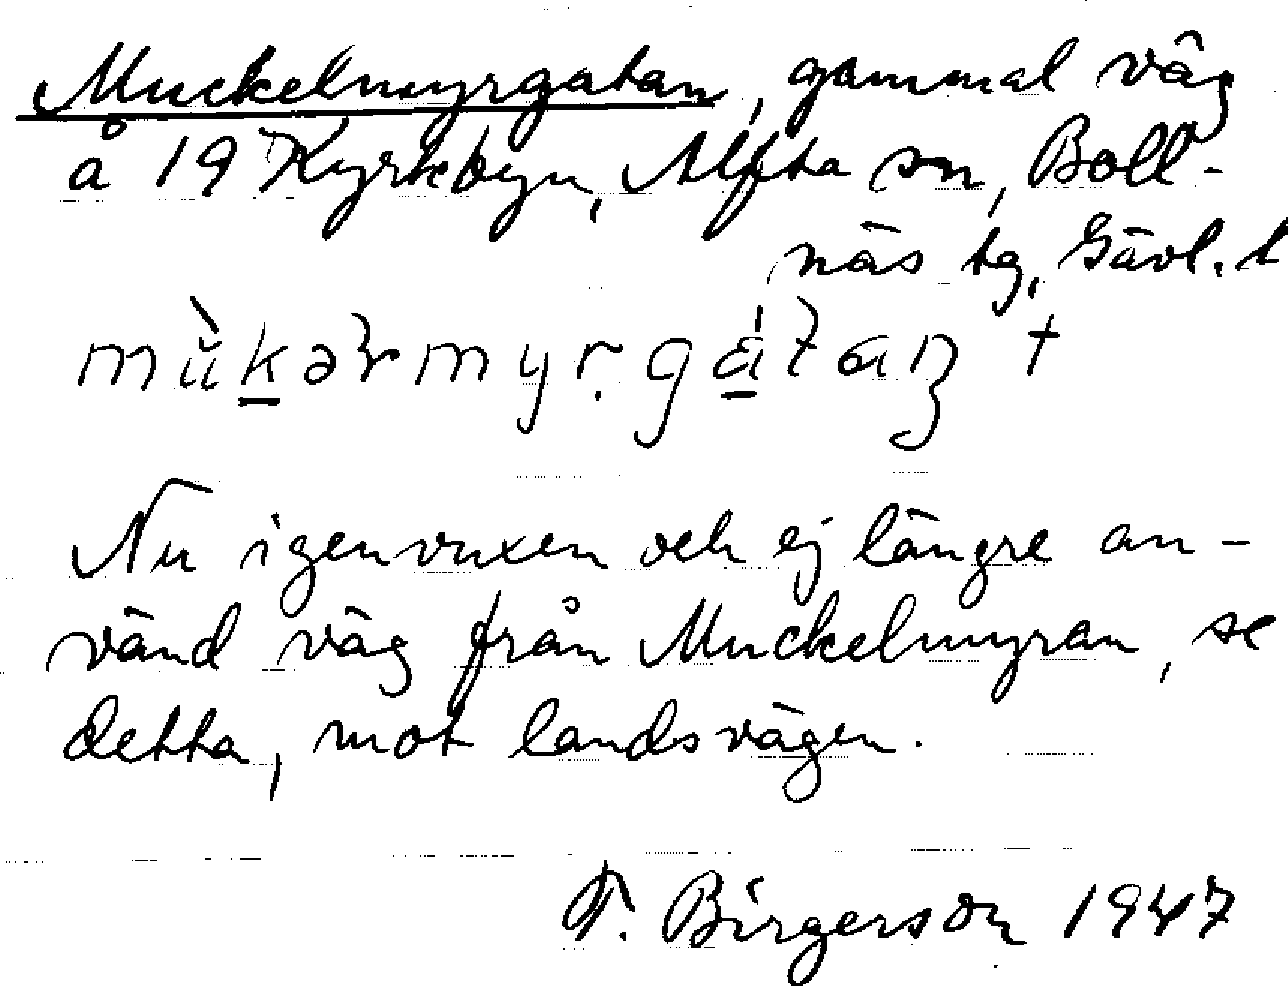 Muckelmyrgatan, gammal väg
å 19 Kyrkbyn, Alfta sn, Boll-
näs tg, Gävl. l
Nu igenvuxen och ej längre an-
vänd väg från Muckelmyran, se
detta, mot landsvägen.
F. Birgerson 1947